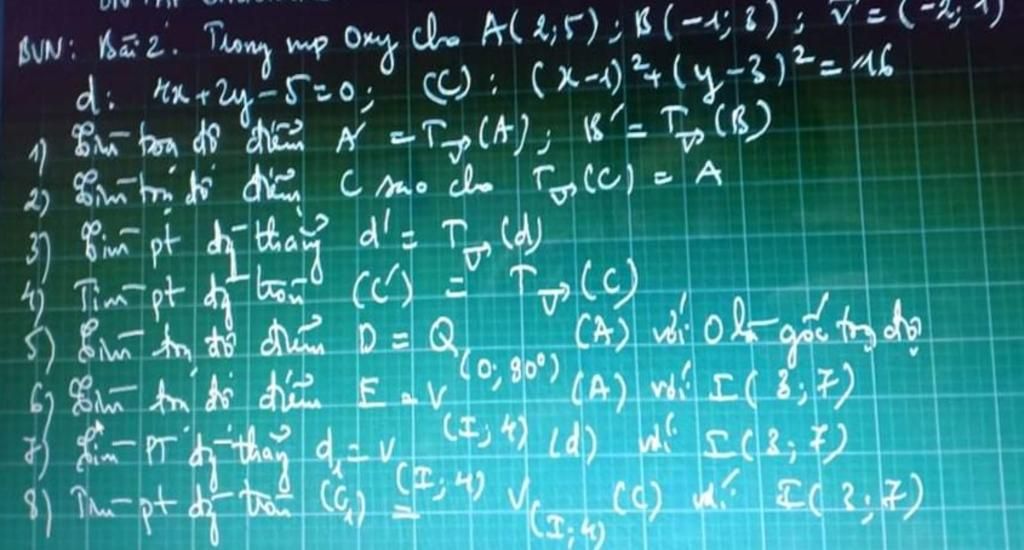 BVN: Bài 2: Trong mp Oxy cho A(2;5); B(-1;3); V⃗ = (-2;1)
d: 4x+2y-5=0; (C): (x-1)²+(y-3)²=16
1) Tìm toạ độ điểm A' = T_V⃗(A); B' = T_V⃗(B)
2) Tìm toạ độ điểm C sao cho T_V⃗(C) = A
3) Tìm pt đg thẳng d' = T_V⃗(d)
4) Tìm pt đg tròn (C') = T_V⃗(C)
5) Tìm toạ độ điểm D = Q_(O;90°)(A) với O là gốc toạ độ
6) Tìm toạ độ điểm E = V_(I;4)(A) với I(3;7)
7) Tìm PT đg thẳng d₁ = V_(I;4)(d) với I(3;7)
8) Tìm pt đg tròn (C₁) = V_(I;4)(C) với I(3;7)